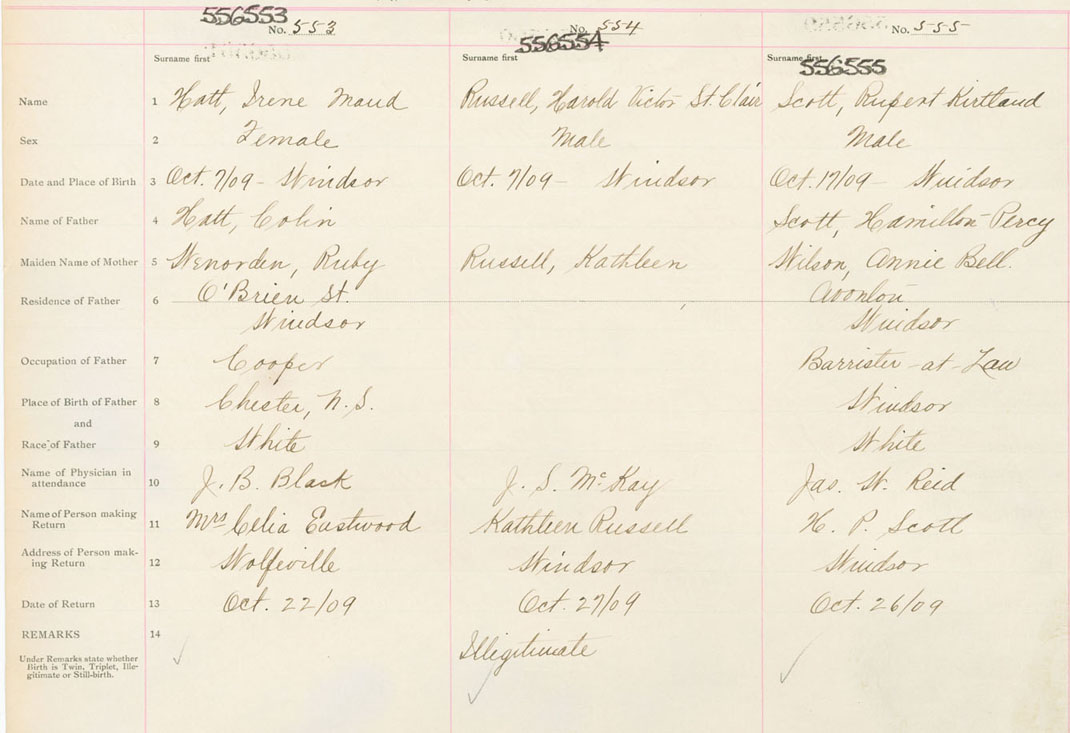 556553
No. 553
No. 554
556554
No. 555
556555
Surname first
Surname first
Surname first
Name 1 Hatt, Irene Maud Russell, Harold Victor St. Clair Scott, Rupert Kirtland
Sex 2 Female Male Male
Date and Place of Birth 3 Oct. 7/09 - Windsor Oct. 7/09 - Windsor Oct. 17/09 - Windsor
Name of Father 4 Hatt, Colin Scott, Hamilton Percy
Maiden Name of Mother 5 Wenorden, Ruby Russell, Kathleen Wilson, Annie Bell.
Residence of Father 6 O'Brien St. Avonlon
Windsor Windsor
Occupation of Father 7 Cooper Barrister-at-Law
Place of Birth of Father 8 Chester, N.S. Windsor
and
Race of Father 9 White White
Name of Physician in
attendance 10 J. B. Black J. S. McKay Jas. W. Reid
Name of Person making
Return 11 Mrs Celia Eastwood Kathleen Russell H. P. Scott
Address of Person mak-
ing Return 12 Wolfville Windsor Windsor
Date of Return 13 Oct. 22/09 Oct. 27/09 Oct. 26/09
REMARKS 14 Illigitimate
Under Remarks state whether
Birth is Twin, Triplet, Ille-
gitimate or Still-birth.